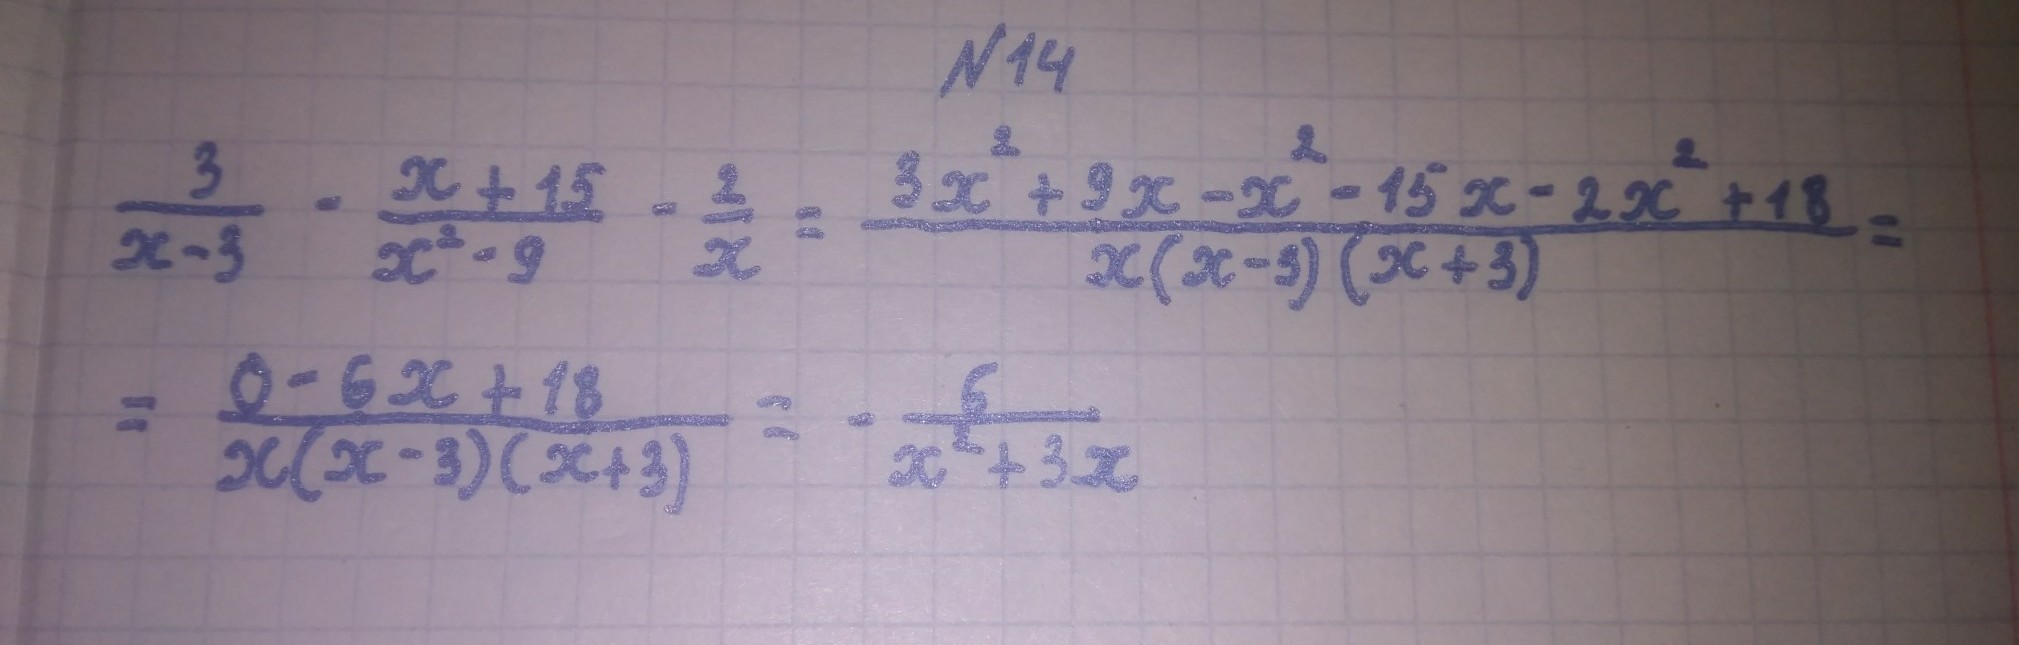 N14
3/(x-3) - (x+15)/(x²-9) - 2/x = (3x²+9x-x²-15x-2x²+18)/(x(x-3)(x+3)) =
= (0-6x+18)/(x(x-3)(x+3)) = - 6/(x²+3x)